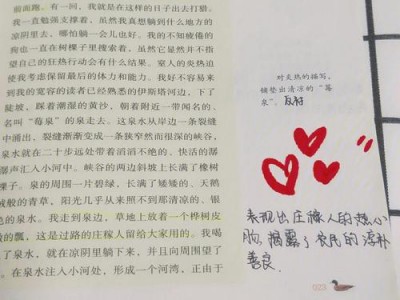 前面跑。有一回，我就是在这样的日子出去打猎。
我一直勉强支撑着，虽然我真想躺到什么地方的
凉阴里去，哪怕躺一会儿也好。我的不知疲倦的
狗也一直在树棵子里搜索着，虽然它显然并不指
望自己的狂热行动会有什么结果。窒人的炎热迫
使我考虑保留最后的体力和能力。我好不容易来
到我的宽容的读者已经熟悉的伊斯塔河边，下了
陡坡，踩着潮湿的黄沙，朝着附近一带闻名的、
名叫“莓泉”的泉走去。这泉水从岸边一条裂缝
中涌出，裂缝渐渐变成一条狭窄然而很深的峡谷，
泉水就在二十步远处带着滔滔不绝的、快活的潺
潺声汇入小河中。峡谷的两边斜坡上长满了橡树
棵子。泉的周围一片碧绿，长满了矮矮的、天鹅
绒般的青草，阳光几乎从来照不到那清凉的、银
色的泉水。我走到泉边，草地上放着一个桦树皮
做的瓢，这是过路的庄稼人留给大家用的。我喝
了泉水，就在凉阴里躺下来，并且向周围望了
。在泉水注入小河处，形成一个河湾，正由于
对炎热的描写，
铺垫出清凉的“莓
泉”。友好
表现出庄稼人的热心
肠，揭露了农民的淳朴
善良.
023